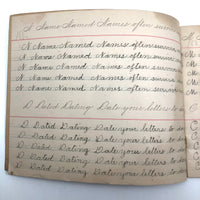 N Name Named Names often survive
N Name Named Names often survive
N Name Named Names often survive
N Name Named Names often survive
N Name Named Names often survive
N Name Named Names often survive
D Dated Dating Date your letters to
D Dated Dating Date your letters to
D Dated Dating Date your letters to
D Dated Dating Date your letters to
D Dated Dating Date your letters to
D Dated Dating Date your letters to
D Dated Dating Date your letters to